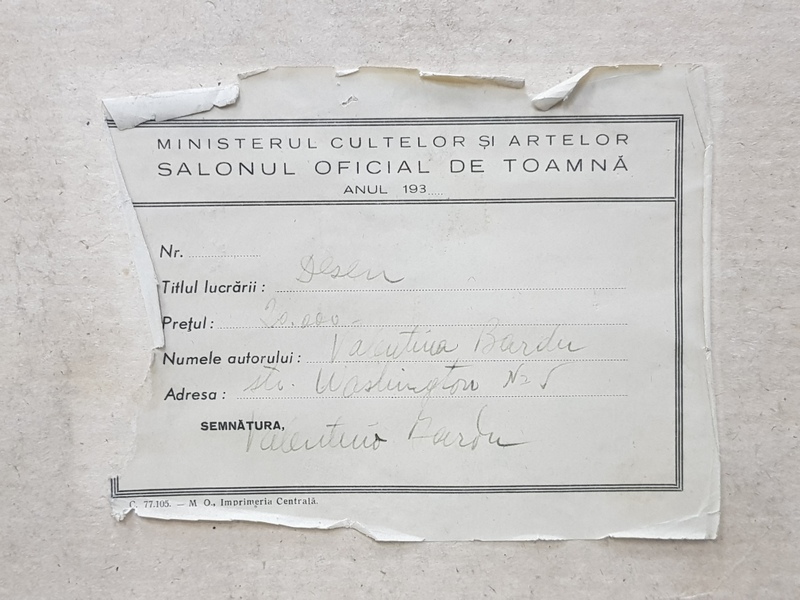 MINISTERUL CULTELOR ȘI ARTELOR
SALONUL OFICIAL DE TOAMNĂ
ANUL 193.....
Nr. ....................
Titlul lucrării : Desen
Prețul : 20.000 -
Numele autorului : Valentina Bardu
Adresa : str. Washington No 5
SEMNĂTURA,
Valentina Bardu
C. 77.105. — M. O., Imprimeria Centrală.